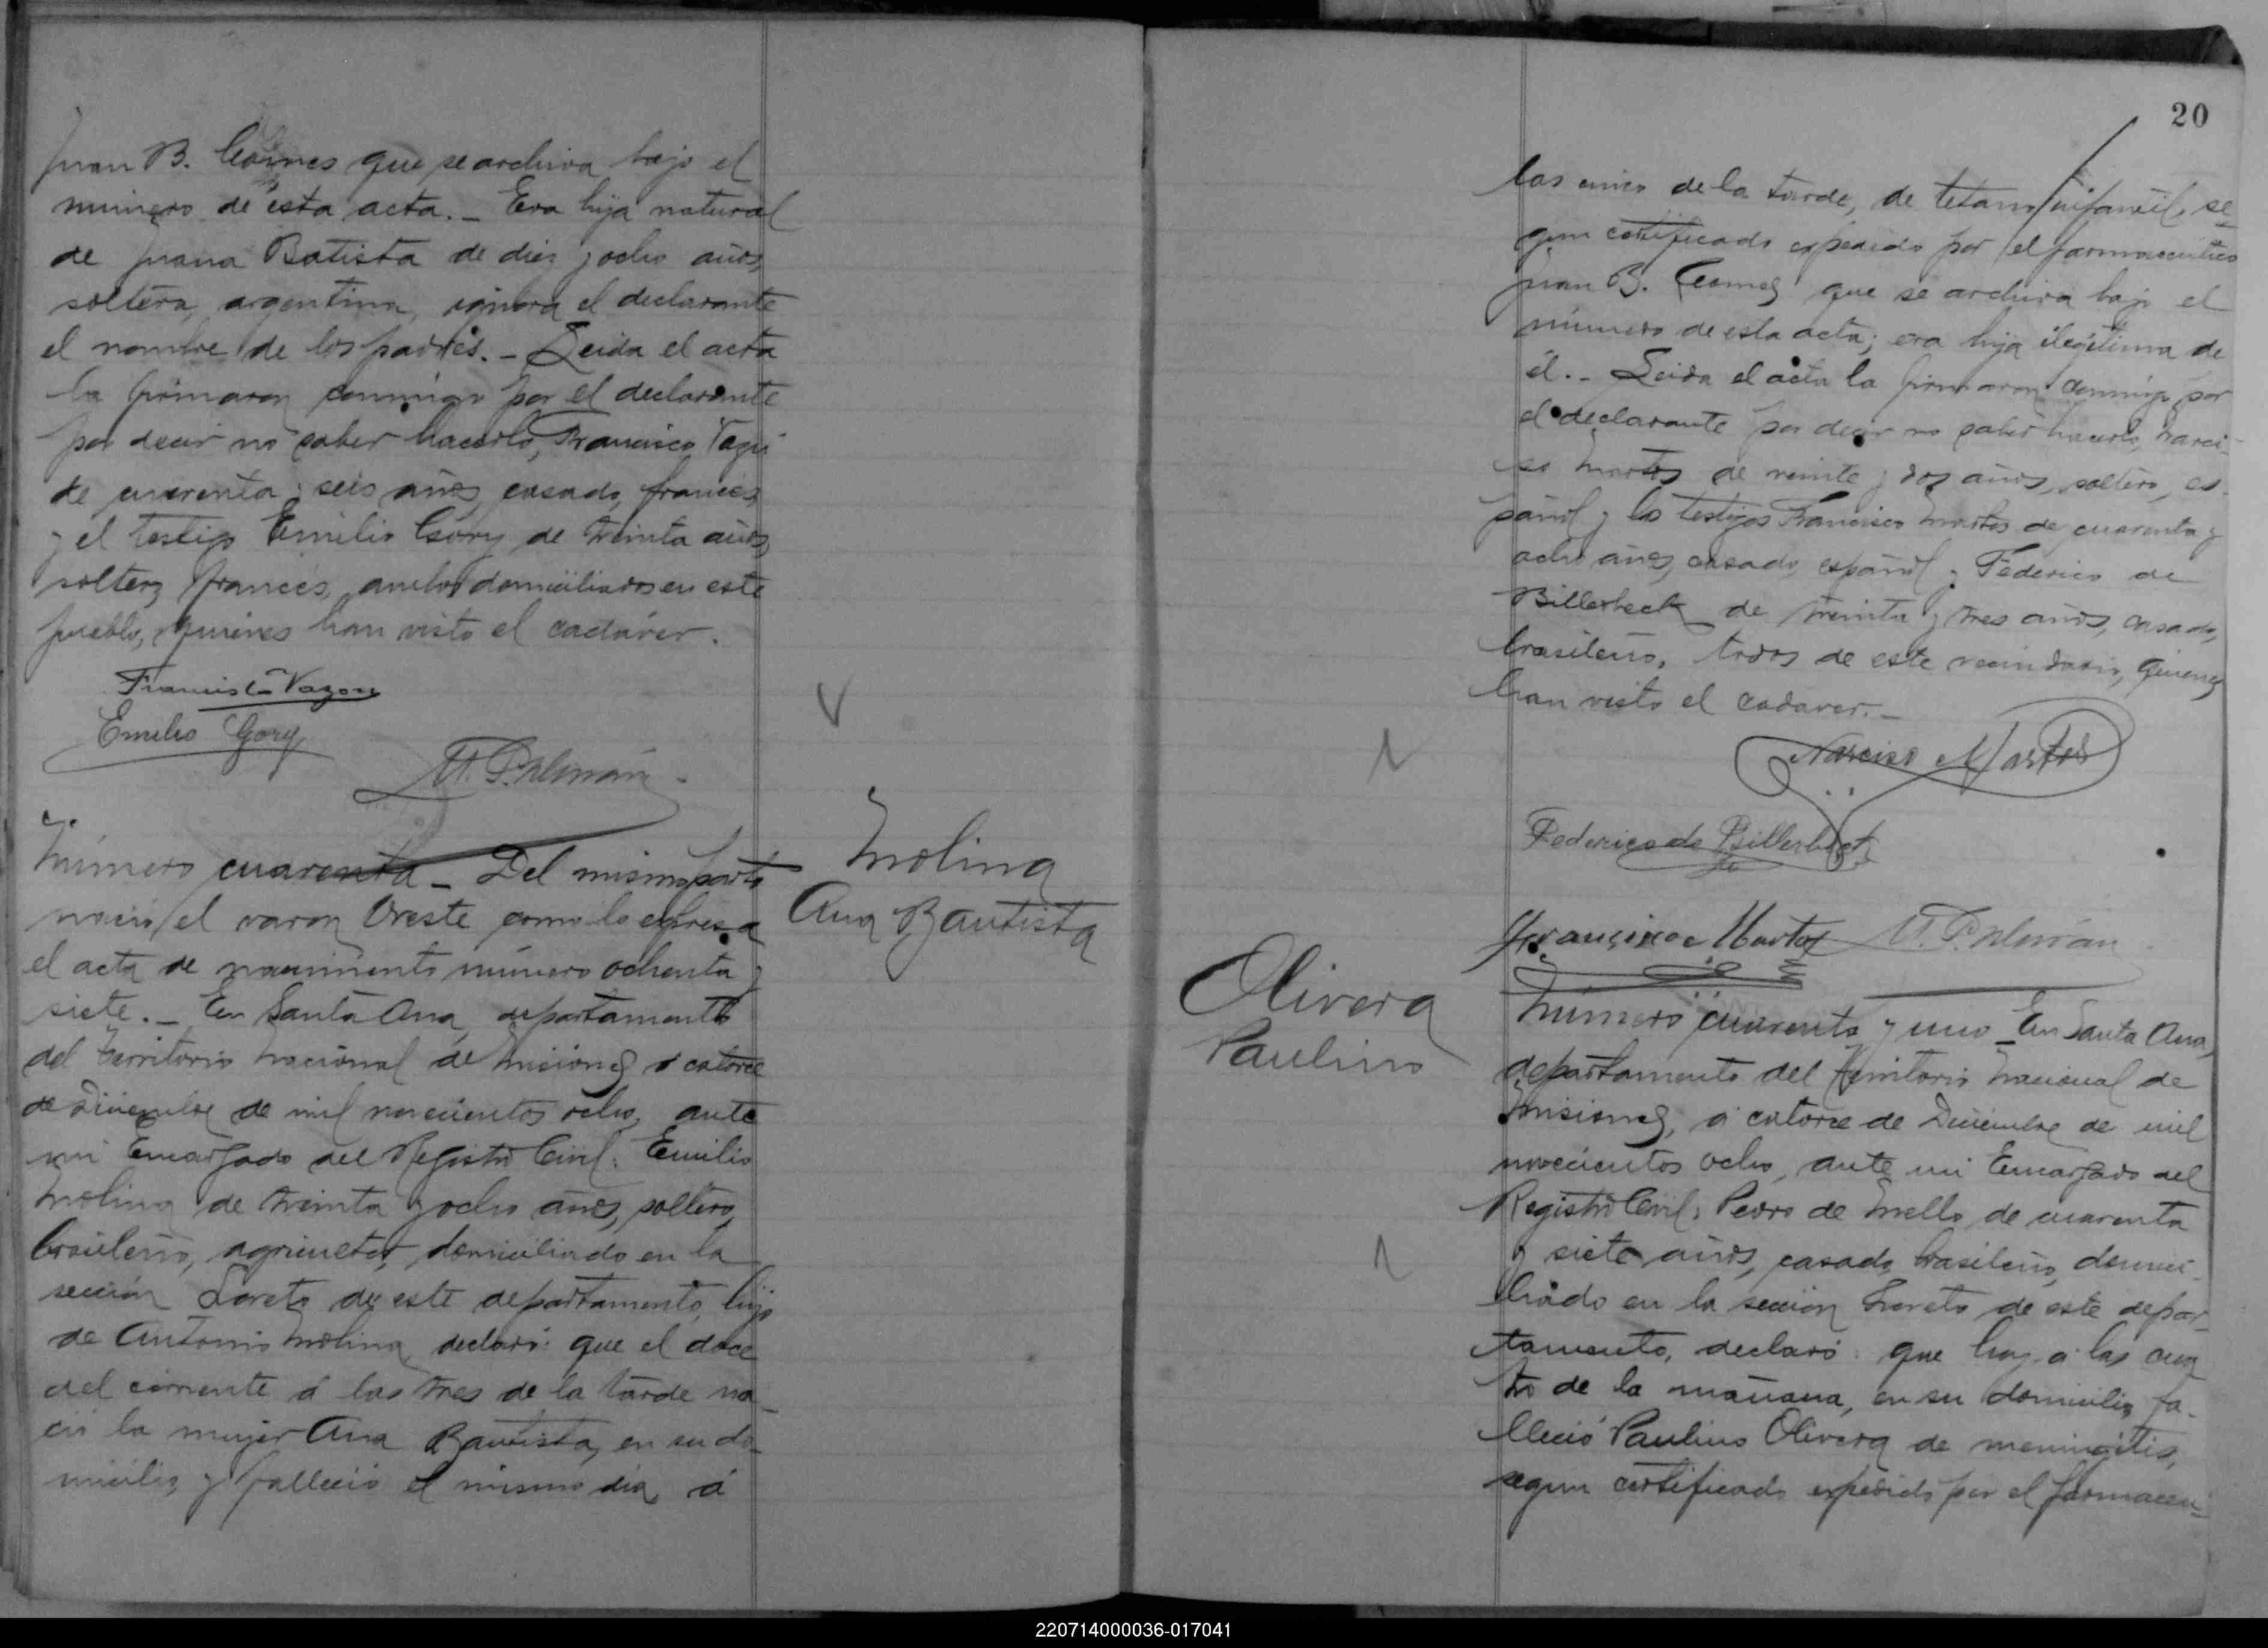 Juan B. Comes que se archiva bajo el
número de esta acta. _ Era hija natural
de Juana Batista de diez y ocho años,
soltera, argentina, ignora el declarante
el nombre de los padres. _ Leida el acta
la firmaron conmigo por el declarante
por decir no saber hacerlo, Francisco
de cuarenta y seis años, casado, francés,
y el testigo Emilio Gory de treinta años,
soltero, francés, ambos domiciliados en este
pueblo, quienes han visto el cadáver.
Emilio Gory
Número cuarenta _ Del mismo parto
nació el varon Oreste como lo expresa
el acta de nacimiento número ochenta y
siete. _ En Santa Ana, departamento
del Territorio Nacional de Misiones á catorce
de Diciembre de mil novecientos ocho, ante
mi Encargado del Registro Civil: Emilio
Molina de treinta y ocho años, soltero,
brasileño, agricultor, domiciliado en la
sección Loreto de este departamento, hijo
de Antonio Molina, declaró: que el doce
del corriente á las tres de la tarde na_
ció la mujer Ana Bautista, en su do_
micilio, y falleció el mismo dia, á
Molina
Ana Bautista
20
las cinco de la tarde, de tetano infantil, se_
gun certificado expedido por el farmaceutico
Juan B. Comes que se archiva bajo el
número de esta acta; era hija ilegitima de
él. _ Leida el acta la firmaron conmigo por
el declarante por decir no saber hacerlo, Narci_
so Martos de veinte y dos años, soltero, es_
pañol y los testigos Francisco Martos de cuarenta y
ocho años, casado, español y Federico de
Billerbeck de treinta y tres años, casado,
brasileño, todos de este vecindario, quienes
han visto el cadaver. _
Narciso Martos
Federico de Billerbeck
Francisco Martos
Olivera
Paulino
Número cuarenta y uno _ En Santa Ana,
departamento del Territorio Nacional de
Misiones, á catorce de Diciembre de mil
novecientos ocho, ante mi Encargado del
Registro Civil: Pedro de Mello, de cuarenta
y siete años, casado, brasileño, domici_
liado en la sección Loreto de este depar_
tamento, declaró: que hoy á las cua
tro de la mañana, en su domicilio, fa_
lleció Paulino Olivera de meningitis,
segun certificado expedido por el farmaceu_
220714000036-017041